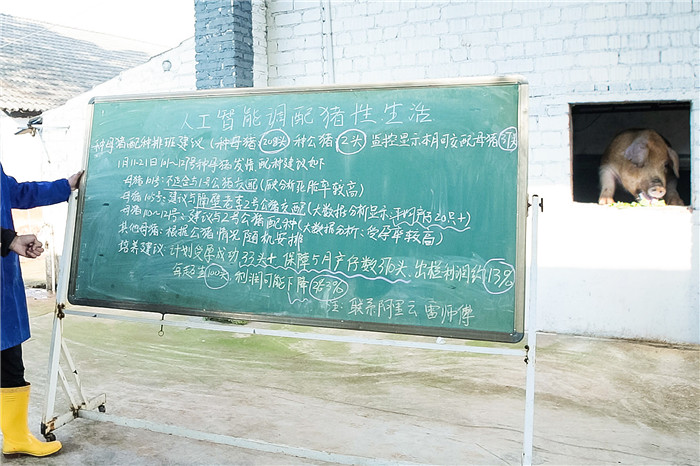 人工智能调配猪性生活
种母猪配种排班建议(种母猪208头)种公猪2头 监控显示本月可支配母猪51头
1月11-21日101~127号种母猪发情,配种建议如下
母猪101号:不适合与1号公猪支配(
母猪105号:建议与隔壁老支2号公猪支配(大数据分析显示:平均产仔20只+)
母猪110~124号:建议与2号公猪配种(大数据分析:受孕率较高)
其他母猪:根据公猪情况随机安排
培养建议:计划受孕成功33头+ 保障5月产仔数510头、出栏利润约13%
超过100头,利润可能下降
注:联系阿里云 雷师傅